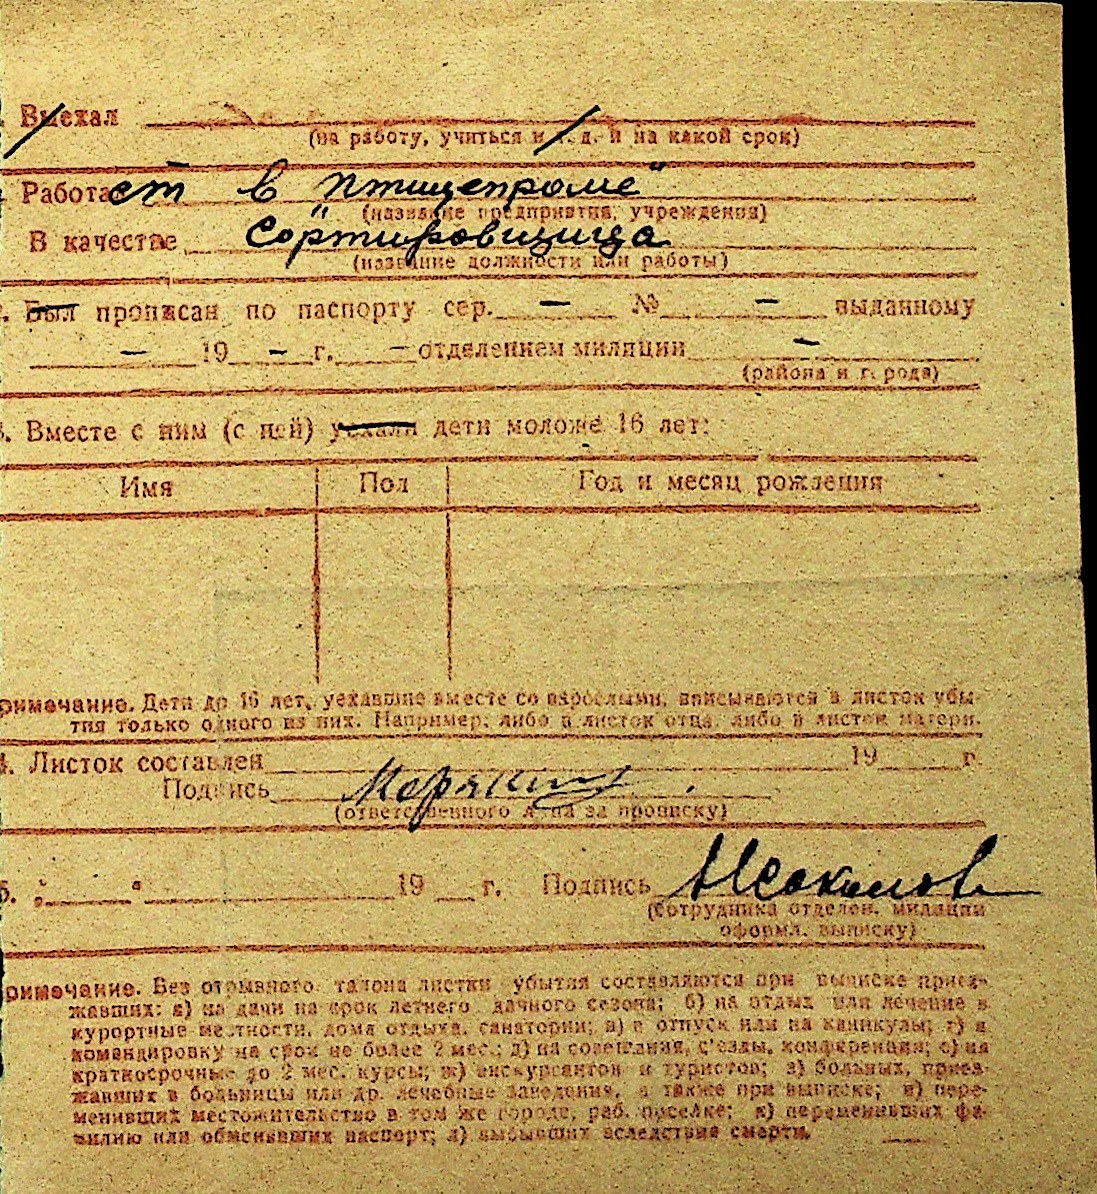 Выехал
(на работу, учиться и т. д. и на какой срок)
Работает в "Птицепроме"
(название предприятия, учреждения)
В качестве сортировщица
(название должности или работы)
Был прописан по паспорту сер. — № — выданному
— 19 — г. — отделением милиции —
(района и города)
3. Вместе с ним (с ней) уехали дети моложе 16 лет:
Имя Пол Год и месяц рождения
римечание. Дети до 16 лет, уехавшие вместе со взрослыми, вписываются в листок убы-
тия только одного из них. Например, либо в листок отца, либо в листок матери.
4. Листок составлен 19 г.
Подпись
(ответственного лица за прописку)
5. " " 19 г. Подпись
(сотрудника отделен. милиции
оформл. выписку)
римечание. Без отрывного талона листки убытия составляются при выписке приез-
жавших: а) на дачи на срок летнего дачного сезона; б) на отдых или лечение в
курортные местности, дома отдыха, санатории; в) в отпуск или на каникулы; г) в
командировку на срок не более 2 мес.; д) на совещания, с'езды, конференции; е) на
краткосрочные до 2 мес. курсы; ж) экскурсантов и туристов; з) больных, приез-
жавших в больницы или др. лечебные заведения, а также при выписке; и) пере-
менивших местожительство в том же городе, раб. поселке; к) переменивших фа-
милию или обменивших паспорт; л) выбывших вследствие смерти.